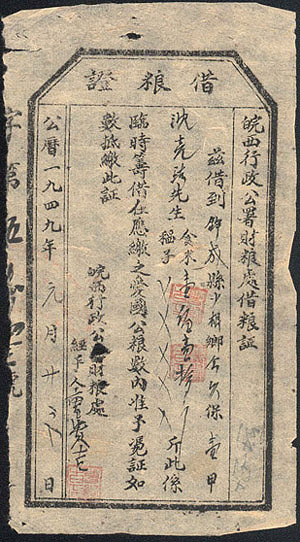 借粮證
皖西行政公署財粮處借粮証
茲借到舒成縣鄉保壹甲
沈克先生食米稻子壹百壹拾斤此係
臨時籌借在應繳之愛國公粮數內准予憑証如
數抵繳此証
皖西行政公署財粮處
經手人
公曆一九四九年元月廿日
字第伍號